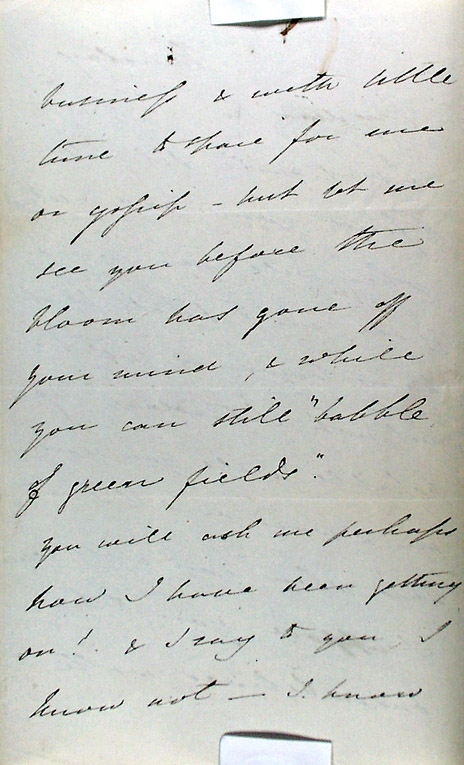 business & with little
time to spare for me
or gossip - but let me
see you before the
bloom has gone off
your mind, & while
you can still "babble
of green fields".
You will ask me perhaps
how I have been getting
on! & I say to you I
know not — I know